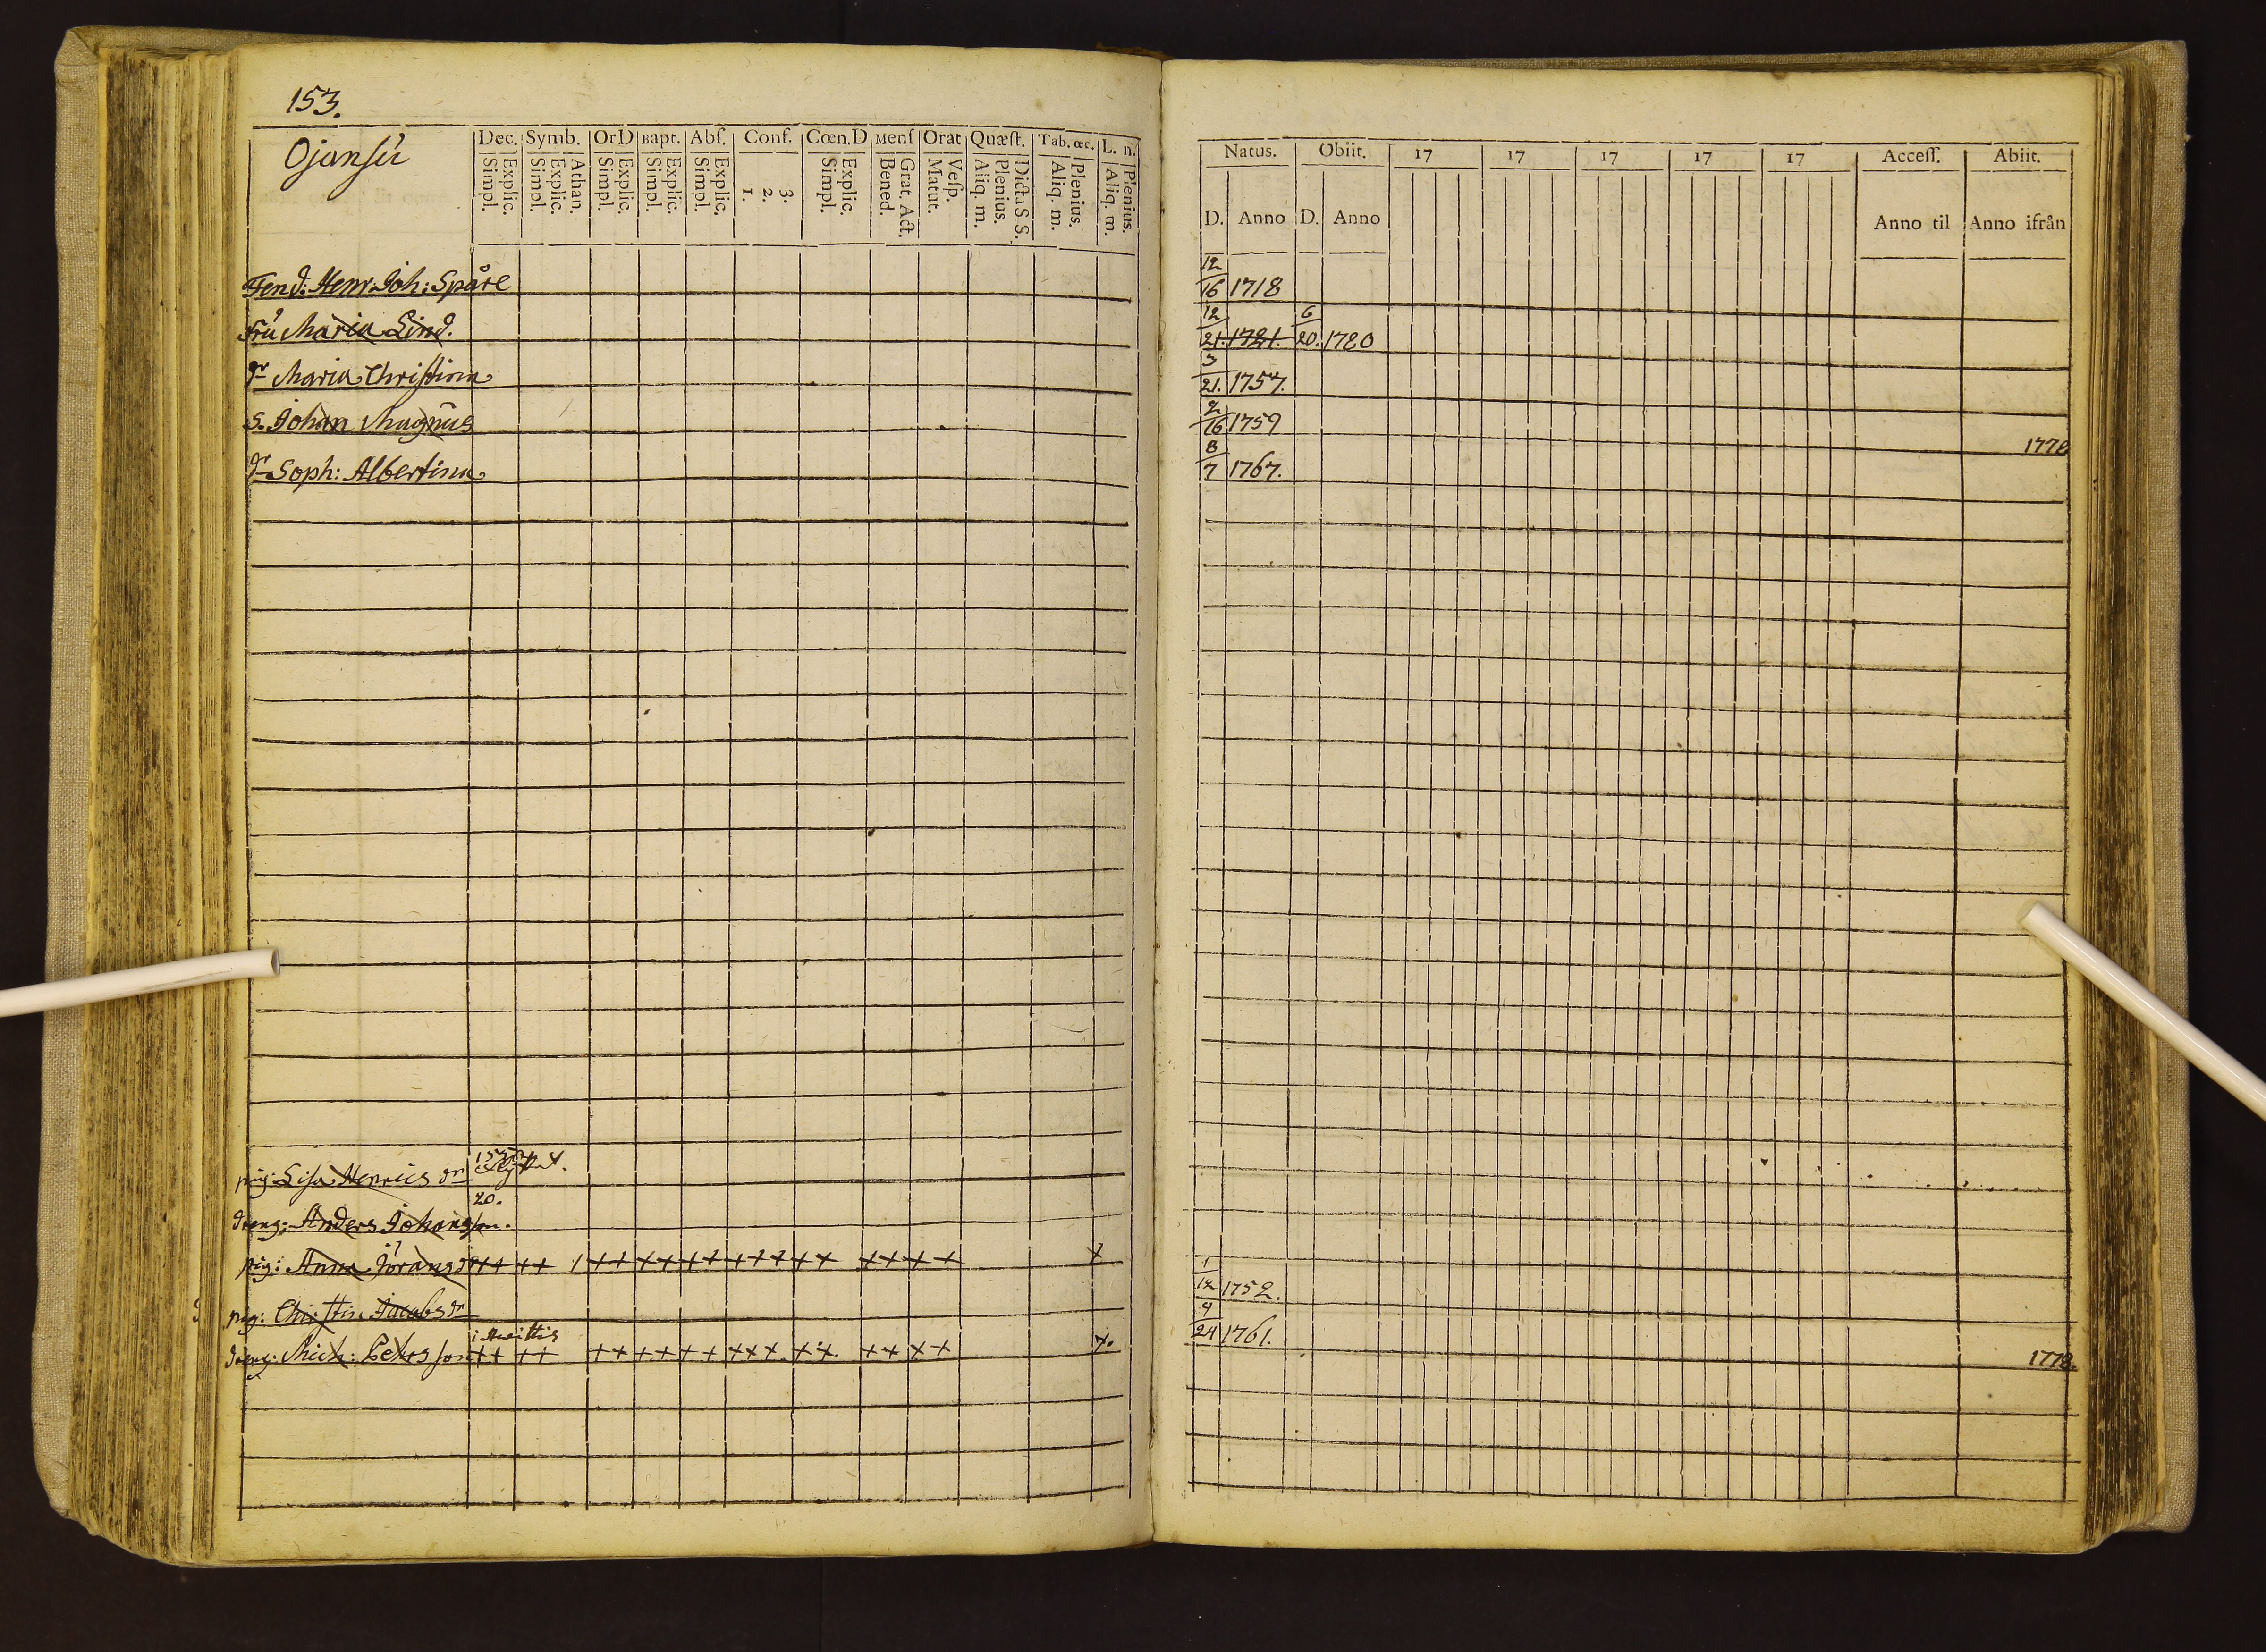 153.
Ojansŭ
Dec. Symb. OrD Bapt. Abſ. Conf. Cœn.D Menſ Orat Quæſt. Tab.œc. L. n.
Simpl. Explic. Simpl. Explic. Athan. Simpl. Explic. Simpl. Explic. Simpl. Explic. 1. 2. 3. Simpl. Explic. Bened. Grat. Act. Matut. Veſp. Aliq. m. Plenius. Dicta S S. Aliq. m. Plenius. Aliq. m. Plenius.
Natus. Obiit. 17 17 17 17 17 Acceſſ. Abiit.
D. Anno D. Anno Anno til Anno ifrån
Fend: Henr: Joh: Spåre 12/16 1718
Frŭ Maria Lind. 12/21. 1721. 6/20. 1780
dr Maria Christina 3/21. 1757.
S. Johan Magnŭs 2/16 1759 1778
dr Soph: Albertina 8/7 1767.
pig: Lisa Henrics dr
20.
dreng: Anders Johansson.
pig: Anna Jörans dr ++ ++ / ++ ++ ++ +++ ++ ++ ++ + 1/12 1752.
pig: Christin Jacobs dr
dreng: Mich: Pehrs son ++ ++ ++ ++ ++ +++ ++. ++ ++ +. 9/24 1761. 1778.